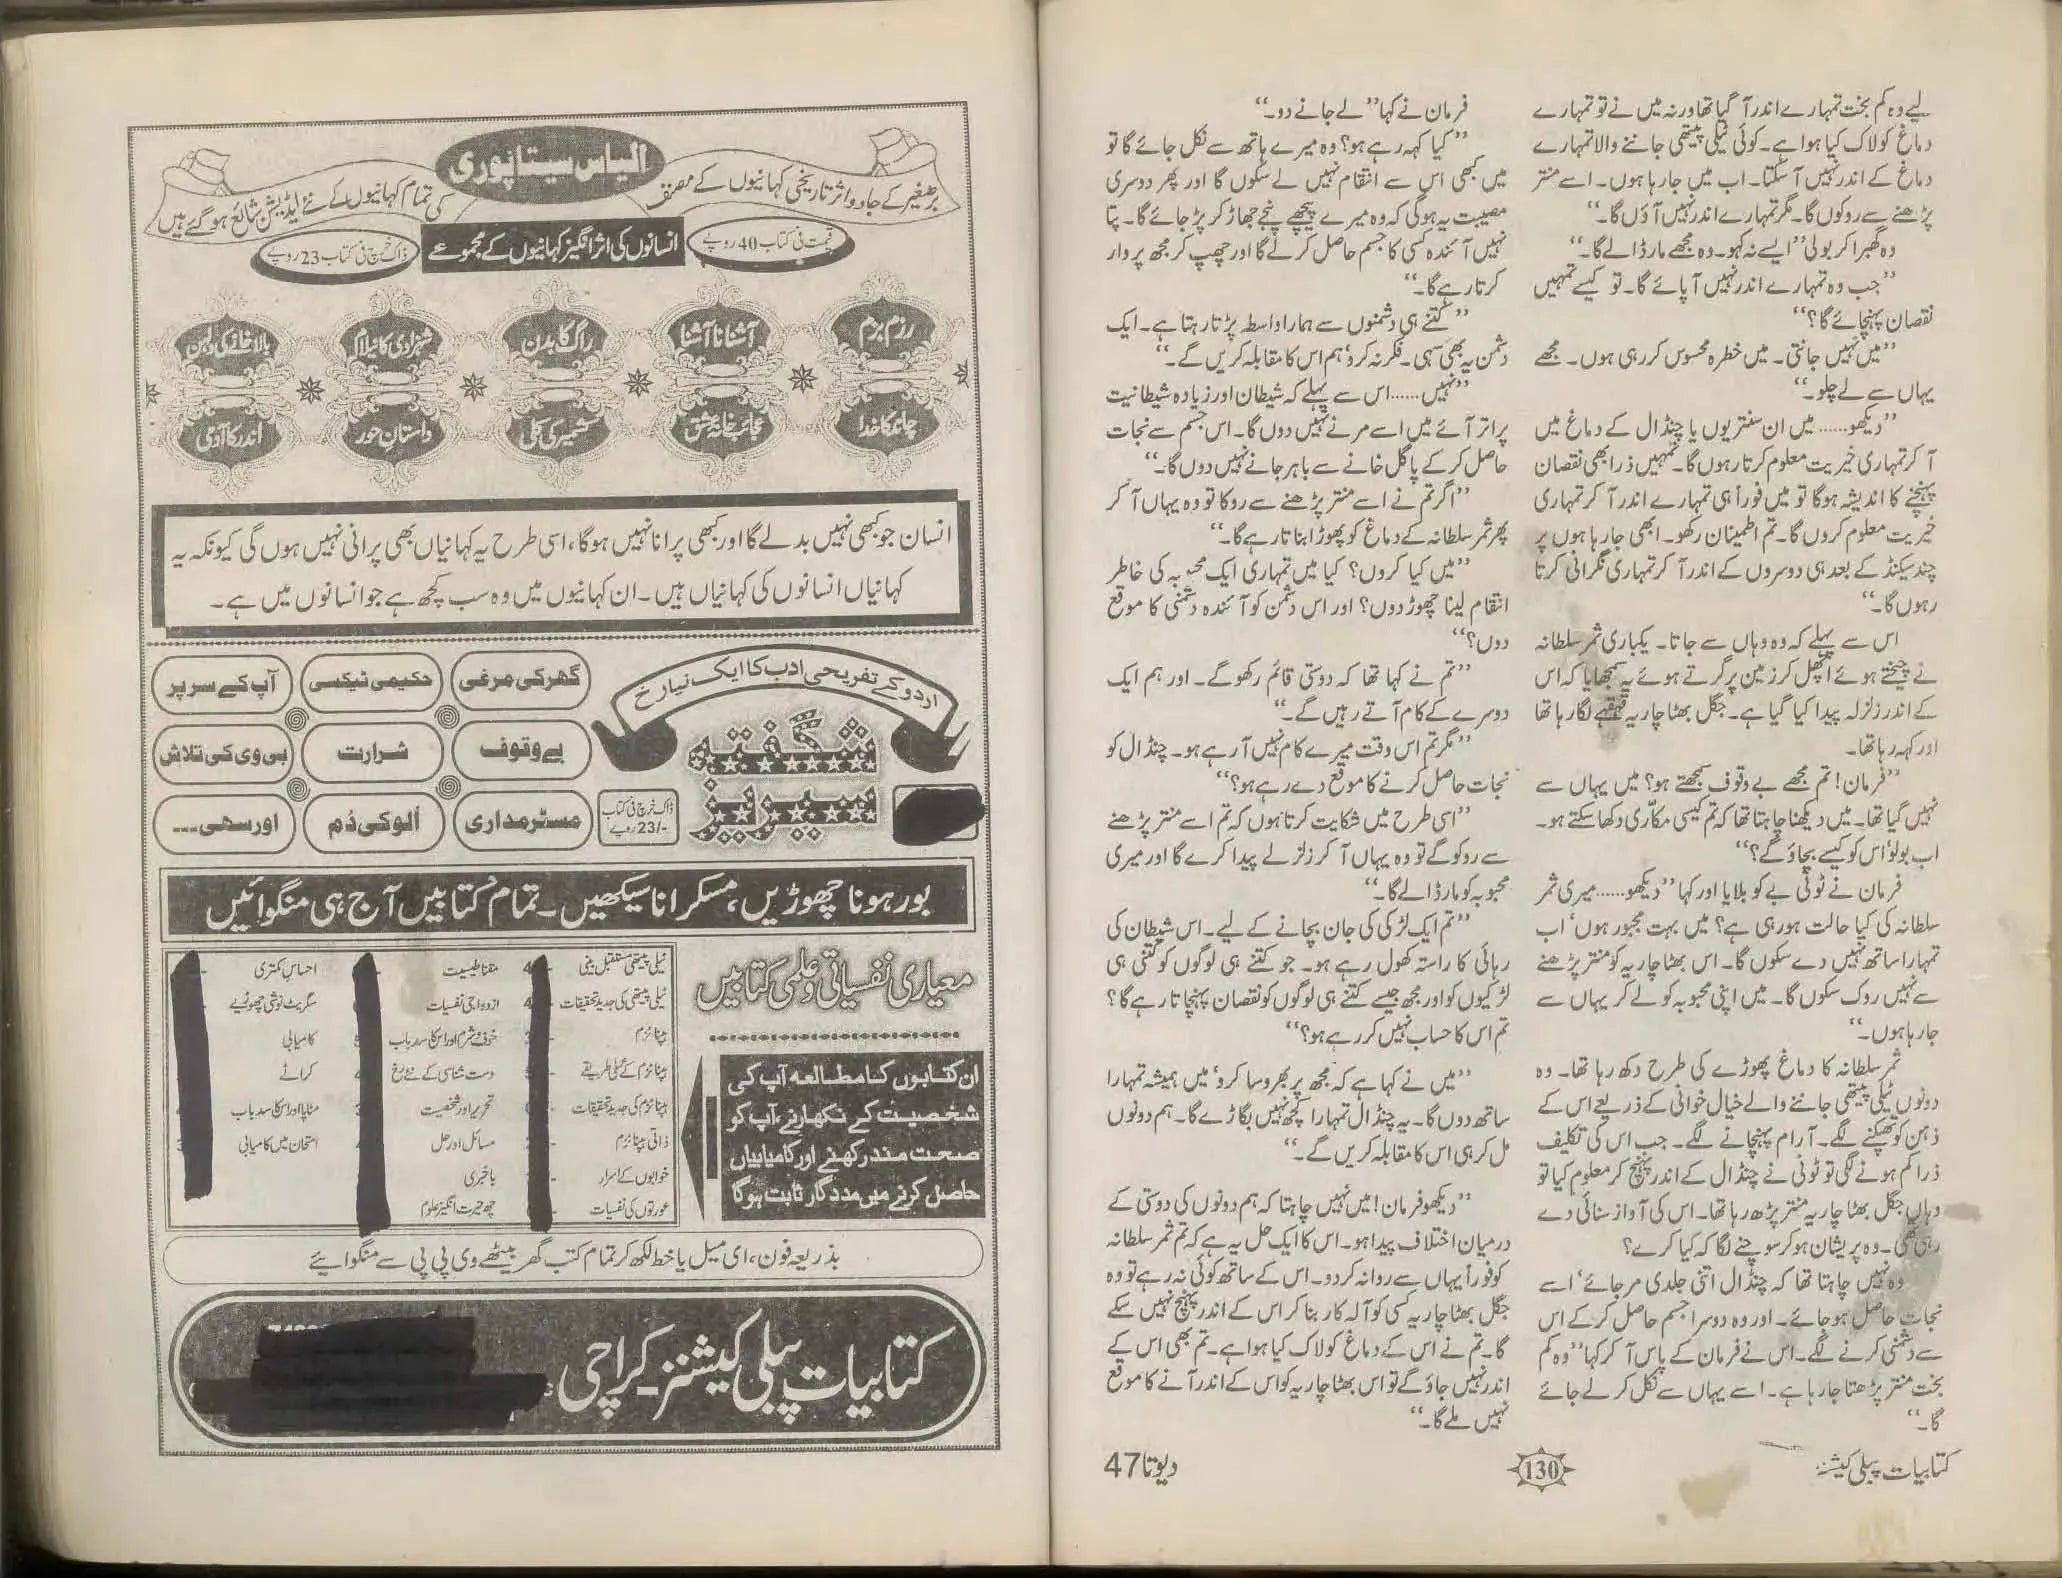 لیے وہ کم بخت تمہارے اندر آ گیا تھا ورنہ میں نے تو تمہارے
دماغ کو لاک کیا ہوا ہے۔ کوئی ٹیلی پیتھی جاننے والا تمہارے
دماغ کے اندر نہیں آ سکتا۔ اب میں جا رہا ہوں۔ اسے منتر
پڑھنے سے روکوں گا۔ مگر تمہارے اندر نہیں آؤں گا۔‘‘
وہ گھبرا کر بولی ’’ایسے نہ کہو۔ وہ مجھے مار ڈالے گا۔‘‘
’’جب وہ تمہارے اندر نہیں آ پائے گا۔ تو کیسے تمہیں
نقصان پہنچائے گا؟‘‘
’’میں نہیں جانتی۔ میں خطرہ محسوس کر رہی ہوں۔ مجھے
یہاں سے لے چلو۔‘‘
’’دیکھو...... میں ان سنتریوں یا چنڈال کے دماغ میں
آ کر تمہاری خیریت معلوم کرتا رہوں گا۔ تمہیں ذرا بھی نقصان
پہنچنے کا اندیشہ ہوگا تو میں فوراً ہی تمہارے اندر آ کر تمہاری
خیریت معلوم کروں گا۔ تم اطمینان رکھو۔ ابھی جا رہا ہوں پر
چند سیکنڈ کے بعد ہی دوسروں کے اندر آ کر تمہاری نگرانی کرتا
رہوں گا۔‘‘
اس سے پہلے کہ وہ وہاں سے جاتا۔ یکبارگی ثمر سلطانہ
نے چیختے ہوئے اچھل کر زمین پر گرتے ہوئے یہ سمجھایا کہ اس
کے اندر زلزلہ پیدا کیا گیا ہے۔ جگل بھٹاچاریہ قہقہے لگا رہا تھا
اور کہہ رہا تھا۔
’’فرمان! تم مجھے بے وقوف سمجھتے ہو؟ میں یہاں سے
نہیں گیا تھا۔ میں دیکھنا چاہتا تھا کہ تم کیسی مکاری دکھا سکتے ہو۔
اب بولو‘ اس کو کیسے بچاؤ گے؟‘‘
فرمان نے ٹونی جے کو بلایا اور کہا ’’دیکھو...... میری ثمر
سلطانہ کی کیا حالت ہو رہی ہے؟ میں بہت مجبور ہوں‘ اب
تمہارا ساتھ نہیں دے سکوں گا۔ اس بھٹاچاریہ کو منتر پڑھنے
سے نہیں روک سکوں گا۔ میں اپنی محبوبہ کو لے کر یہاں سے
جا رہا ہوں۔‘‘
ثمر سلطانہ کا دماغ پھوڑے کی طرح دکھ رہا تھا۔ وہ
دونوں ٹیلی پیتھی جاننے والے خیال خوانی کے ذریعے اس کے
ذہن کو تھپکنے لگے۔ آرام پہنچانے لگے۔ جب اس کی تکلیف
ذرا کم ہونے لگی تو ٹونی نے چنڈال کے اندر پہنچ کر معلوم کیا تو
وہاں جگل بھٹاچاریہ منتر پڑھ رہا تھا۔ اس کی آواز سنائی دے
رہی تھی۔ وہ پریشان ہو کر سوچنے لگا کہ کیا کرے؟
وہ نہیں چاہتا تھا کہ چنڈال اتنی جلدی مر جائے‘ اسے
نجات حاصل ہو جائے۔ اور وہ دوسرا جسم حاصل کر کے اس
سے دشمنی کرنے لگے۔ اس نے فرمان کے پاس آ کر کہا ’’وہ کم
بخت منتر پڑھتا جا رہا ہے۔ اسے یہاں سے نکل کر لے جائے
گا۔‘‘
فرمان نے کہا ’’لے جانے دو۔‘‘
’’کیا کہہ رہے ہو؟ وہ میرے ہاتھ سے نکل جائے گا تو
میں کبھی اس سے انتقام نہیں لے سکوں گا اور پھر دوسری
مصیبت یہ ہوگی کہ وہ میرے پیچھے پنجے جھاڑ کر پڑ جائے گا۔ پتا
نہیں آئندہ کسی کا جسم حاصل کرلے گا اور چھپ کر مجھ پر وار
کرتا رہے گا۔‘‘
’’کتنے ہی دشمنوں سے ہمارا واسطہ پڑتا رہتا ہے۔ ایک
دشمن یہ بھی سہی۔ فکر نہ کرو‘ ہم اس کا مقابلہ کریں گے۔‘‘
’’نہیں...... اس سے پہلے کہ شیطان اور زیادہ شیطانیت
پر اتر آئے میں اسے مرنے نہیں دوں گا۔ اس جسم سے نجات
حاصل کر کے پاگل خانے سے باہر جانے نہیں دوں گا۔‘‘
’’اگر تم نے اسے منتر پڑھنے سے روکا تو وہ یہاں آ کر
پھر ثمر سلطانہ کے دماغ کو پھوڑا بناتا رہے گا۔‘‘
’’میں کیا کروں؟ کیا میں تمہاری ایک محبوبہ کی خاطر
انتقام لینا چھوڑ دوں؟ اور اس دشمن کو آئندہ دشمنی کا موقع
دوں؟‘‘
’’تم نے کہا تھا کہ دوستی قائم رکھو گے۔ اور ہم ایک
دوسرے کے کام آتے رہیں گے۔‘‘
’’مگر تم اس وقت میرے کام نہیں آ رہے ہو۔ چنڈال کو
نجات حاصل کرنے کا موقع دے رہے ہو؟‘‘
’’اسی طرح میں شکایت کرتا ہوں کہ تم اسے منتر پڑھنے
سے روکو گے تو وہ یہاں آ کر زلزلے پیدا کرے گا اور میری
محبوبہ کو مار ڈالے گا۔‘‘
’’تم ایک لڑکی کی جان بچانے کے لیے۔ اس شیطان کی
رہائی کا راستہ کھول رہے ہو۔ جو کتنے ہی لوگوں کو کتنی ہی
لڑکیوں کو اور مجھ جیسے کتنے ہی لوگوں کو نقصان پہنچاتا رہے گا؟
تم اس کا حساب نہیں کر رہے ہو؟‘‘
’’میں نے کہا ہے کہ مجھ پر بھروسا کرو‘ میں ہمیشہ تمہارا
ساتھ دوں گا۔ یہ چنڈال تمہارا کچھ نہیں بگاڑے گا۔ ہم دونوں
مل کر ہی اس کا مقابلہ کریں گے۔‘‘
’’دیکھو فرمان! میں نہیں چاہتا کہ ہم دونوں کی دوستی کے
درمیان اختلاف پیدا ہو۔ اس کا ایک حل یہ ہے کہ تم ثمر سلطانہ
کو فوراً یہاں سے روانہ کر دو۔ اس کے ساتھ کوئی نہ رہے تو وہ
جگل بھٹاچاریہ کسی کو آلہ کار بنا کر اس کے اندر پہنچ نہیں سکے
گا۔ تم نے اس کے دماغ کو لاک کیا ہوا ہے۔ تم بھی اس کے
اندر نہیں جاؤ گے تو اس بھٹاچاریہ کو اس کے اندر آنے کا موقع
نہیں ملے گا۔‘‘
کتابیات پبلی کیشنز
130
دیوتا 47
الیاس سیتاپوری
برِّصغیر کے جادو اثر تاریخی کہانیوں کے مصنف
کی تمام کہانیوں کے نئے ایڈیشن شائع ہو گئے ہیں
قیمت فی کتاب 40 روپے
انسانوں کی اثر انگیز کہانیوں کے مجموعے
ڈاک خرچ فی کتاب 23 روپے
رزم بزم
آشنا نا آشنا
راگ کا بدن
شہزادی کا نیلام
بالا خانے کی دلہن
چاند کا خدا
عجائب خانہ عشق
کشمیر کی کلی
داستانِ حور
اندر کا آدمی
انسان جو کبھی نہیں بدلے گا اور کبھی پرانا نہیں ہوگا، اسی طرح یہ کہانیاں بھی پرانی نہیں ہوں گی کیونکہ یہ
کہانیاں انسانوں کی کہانیاں ہیں۔ ان کہانیوں میں وہ سب کچھ ہے جو انسانوں میں ہے۔
اردو کے تفریحی ادب کا ایک نیا رخ
شگفتہ
سیریز
ڈاک خرچ فی کتاب
23/- روپے
گھر کی مرغی
حکیمی ٹیکسی
آپ کے سر پر
بے وقوف
شرارت
بیوی کی تلاش
مسٹر مداری
الو کی دُم
اور سہی...
بور ہونا چھوڑیں، مسکرانا سیکھیں۔ تمام کتابیں آج ہی منگوائیں
معیاری نفسیاتی و علمی کتابیں
ان کتابوں کا مطالعہ آپ کی
شخصیت کے نکھارنے، آپ کو
صحت مند رکھنے اور کامیابیاں
حاصل کرنے میں مددگار ثابت ہوگا
ٹیلی پیتھی مستقبل بینی
ٹیلی پیتھی کی جدید تحقیقات
ہپناٹزم
ہپناٹزم کے عملی طریقے
ہپناٹزم کی جدید تحقیقات
ذاتی ہپناٹزم
خوابوں کے اسرار
عورتوں کی نفسیات
مقناطیسیت
ازدواجی نفسیات
خوف و شرم اور اس کا سدباب
دست شناسی کے نئے رخ
تحریر اور شخصیت
مسائل اور حل
باخبری
چھ حیرت انگیز علوم
احساسِ کمتری
سگریٹ نوشی چھوڑیے
کامیابی
کراٹے
مٹاپا اور اس کا سدباب
امتحان میں کامیابی
بذریعہ فون، ای میل یا خط لکھ کر تمام کتب گھر بیٹھے وی پی پی سے منگوائیے
کتابیات پبلی کیشنز۔ کراچی